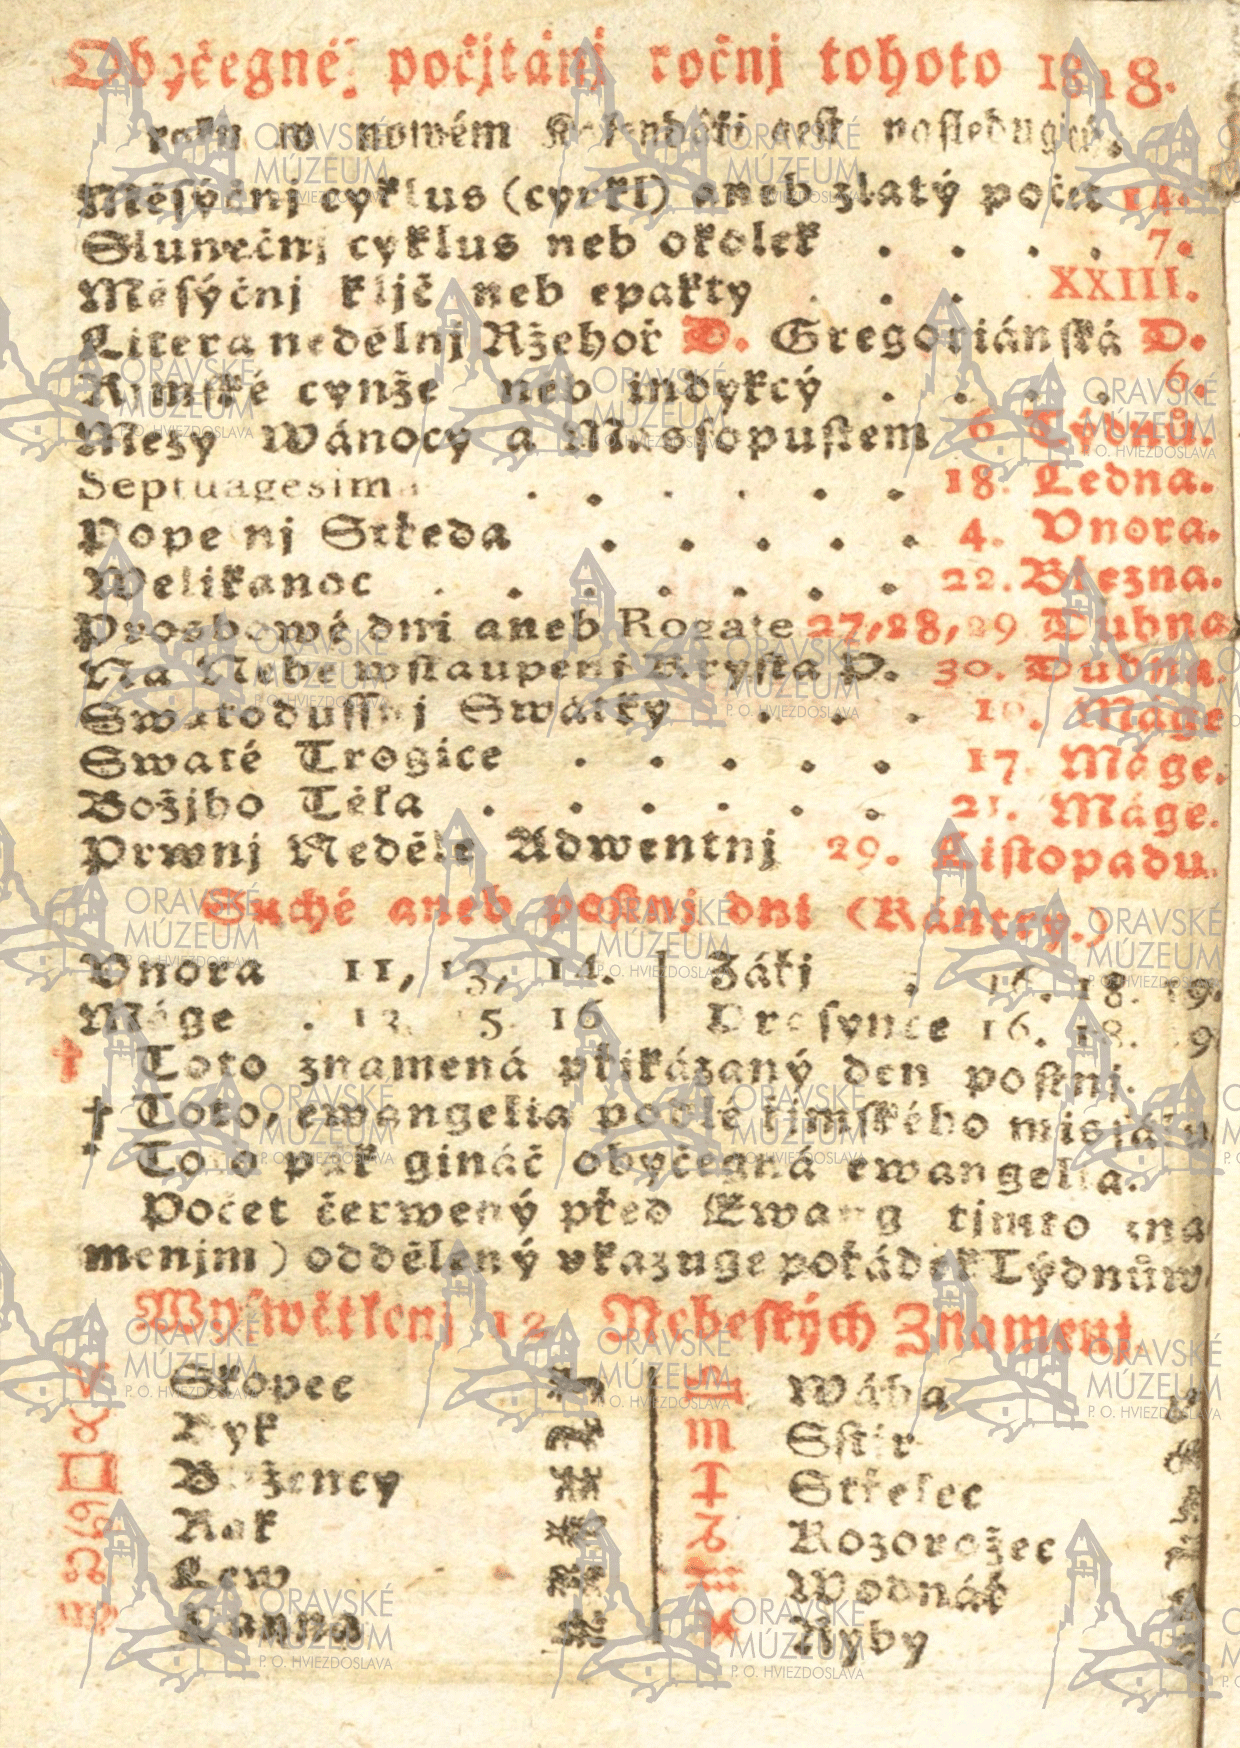 Obyčegné počjtánj ročnj tohoto 1818.
roku w nowém Kalendáři gest nasledugjcý:
Měsýčnj cyklus (cyrkl) aneb zlatý počet 14.
Slunečnj cyklus neb okolek . . . . 7.
Měsýčnj kljč neb epakty . . . XXIII.
Litera nedělnj Ržehoř D. Gregoriánská D.
Řimské cynže neb indykcý . . . . 6.
Mezy Wánocy a Massopustem 6 Týdnů.
Septuagesima . . . . . . 18. Ledna.
Popelnj Středa . . . . . 4. Vnora.
Welikanoc . . . . . . . 22. Března.
Prosbowé dni aneb Rogate 27, 28, 29 Dubna
Na Nebe wstaupenj Krysta P. 30. Dubna.
Swatodussnj Swátky . . . 10. Máge
Swaté Trogice . . . . . 17 Máge.
Božjho Těla . . . . . . 21. Máge.
Prwnj Neděle Adwentnj 29. Listopadu.
Suché aneb postnj dni (Kántry.)
Vnora 11, 13, 14. | Zářj . 16. 18. 19.
Máge . 13. 15 16 | Prosynce 16. 18. 19
† Toto znamená přikázaný den postnj.
† Toto, ewangelia podlé řimského missálu
* Toto pak gináč obyčegná ewangelia.
Počet červwený před Ewang timto zna
menjm ) oddělený vkazuge pořádek Týdnůw
Wyswětlenj 12 Nebeských Znamenj.
♈ Skopec | ♎ Wáha
♉ Byk | ♏ Sstir
♊ Bljžency | ♐ Střelec
♋ Rak | ♑ Kozorožec
♌ Lew | ♒ Wodnář
♍ Panna | ♓ Ryby
ORAVSKÉ
MÚZEUM
P. O. HVIEZDOSLAVA